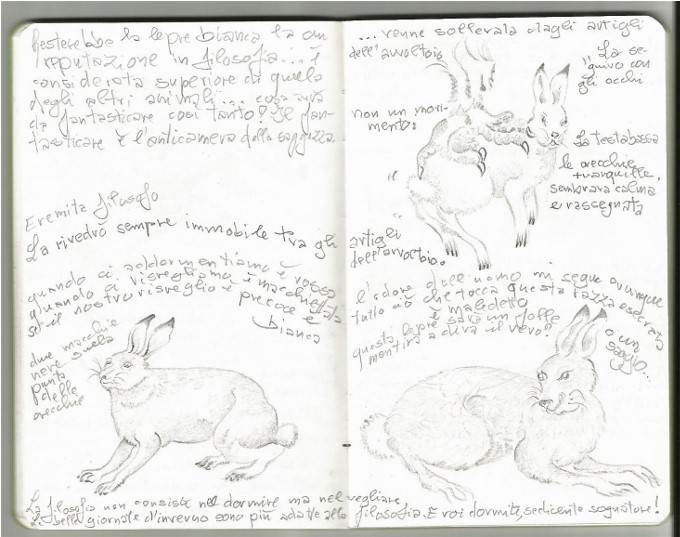 Resterebbe la lepre bianca ha un
reputazione in filosofia... è
considerata superiore di quella
degli altri animali... cosa avrà
da fantasticare così tanto? Se fan-
tasticare è l'anticamera della saggezza.
Eremita filosofo
La rivedrò sempre immobile tra gli
quando ci addormentiamo è rossa
quando ci risvegliamo è macchiata
se il nostro risveglio è precoce è
bianca
due macchie
nere sulla
punta
delle
orecchie
La filosofia non consiste nel dormire ma nel vegliare.
belle giornate d'inverno sono più adatte alla filosofia. E voi dormite, sedicente sognatore!
... venne sollevata dagli artigli
dell'avvoltoio
"La se-
guivo con
gli occhi
non un movi-
mento:
La testa bassa
le orecchie
tranquille,
sembrava calma
e rassegnata
artigli
dell'avvoltoio.
l'odore dell'uomo mi segue ovunque
tutto ciò che tocca questa razza esecrata
è maledetto
questa lepre sarà un folle
mentirà o dirà il vero?
o un
saggio...